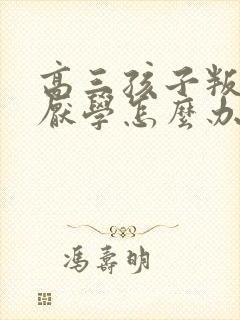 高三孩子叛
厭學怎麼办
馮壽明